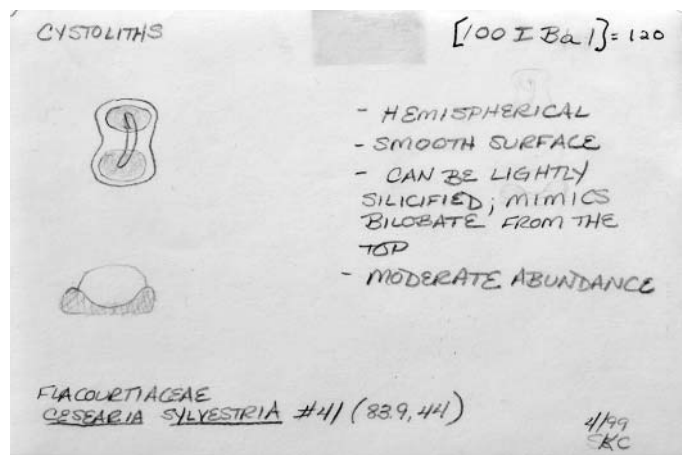 CYSTOLITHS
[100 I Ba 1] = 120
- HEMISPHERICAL
- SMOOTH SURFACE
- CAN BE LIGHTLY
SILICIFIED; MIMICS
BILOBATE FROM THE
TOP
- MODERATE ABUNDANCE
FLACOURTIACEAE
CESEARIA SYLVESTRIA #41 (83.9, 44)
4/99
SKC